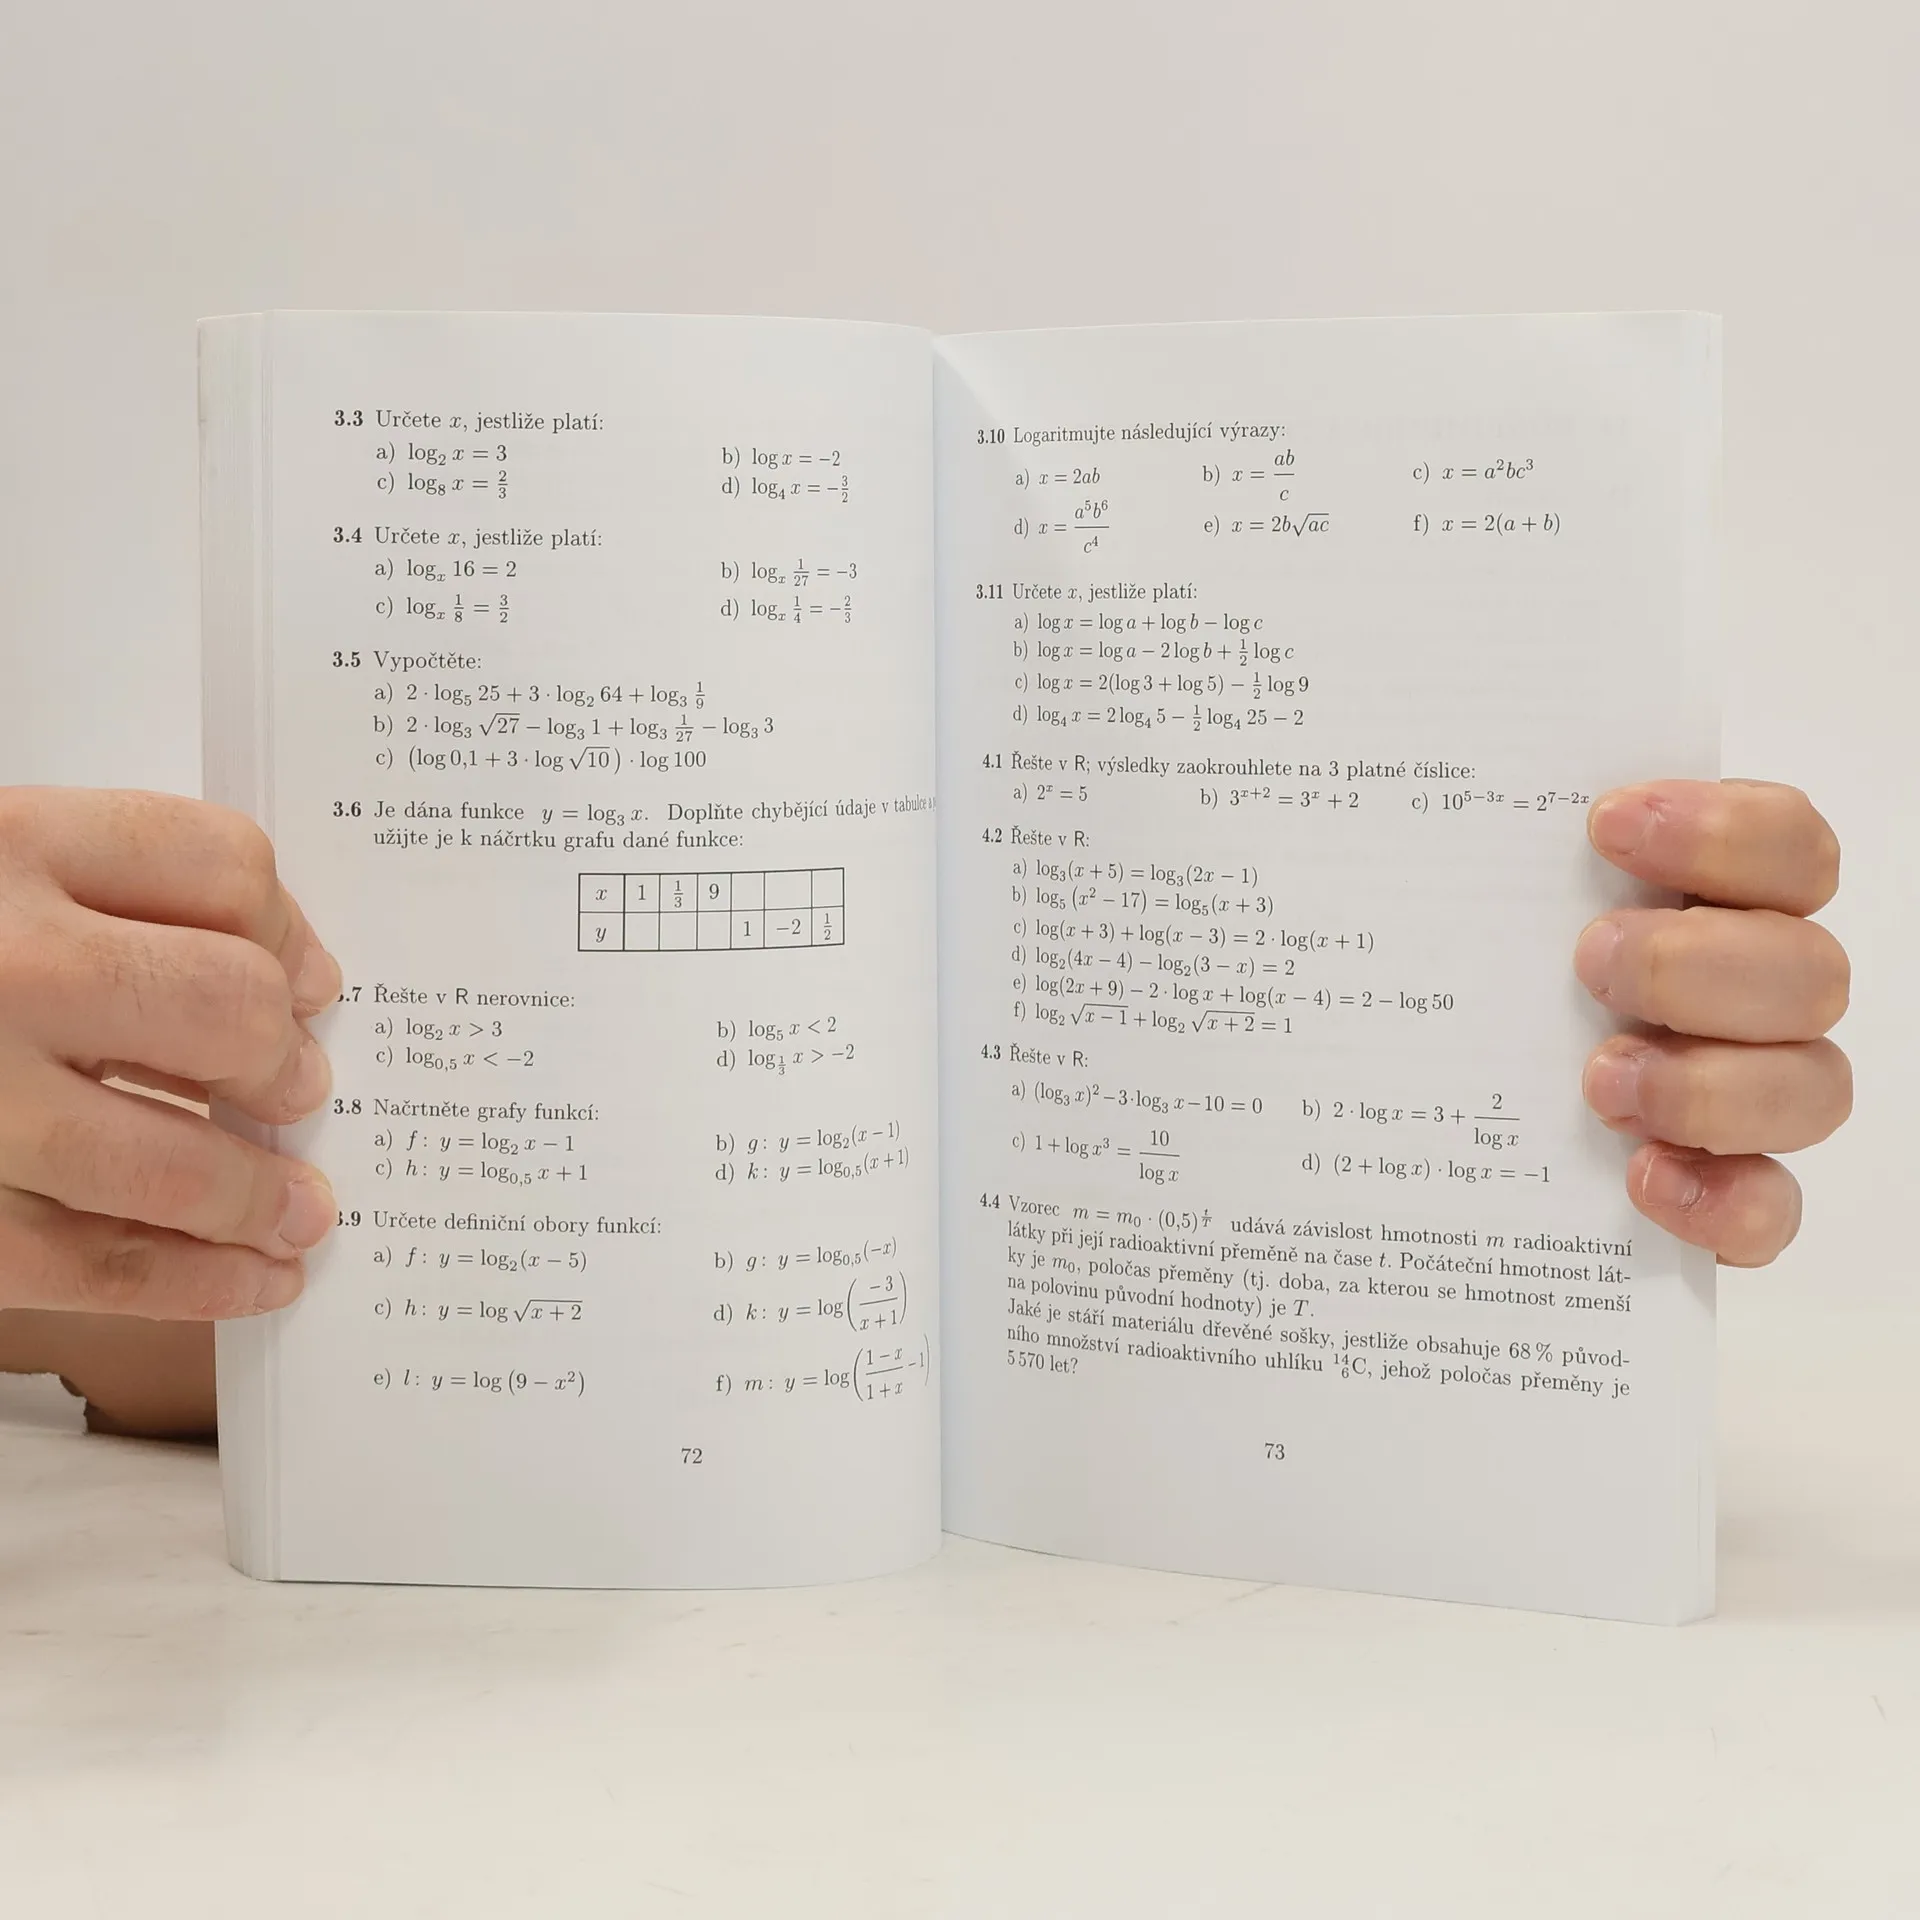 3.3 Určete x, jestliže platí:
a) log₂ x = 3 b) log x = −2
c) log₈ x = 2/3 d) log₄ x = −3/2
3.4 Určete x, jestliže platí:
a) logₓ 16 = 2 b) logₓ 1/27 = −3
c) logₓ 1/8 = 3/2 d) logₓ 1/4 = −2/3
3.5 Vypočtěte:
a) 2 · log₅ 25 + 3 · log₂ 64 + log₃ 1/9
b) 2 · log₃ √27 − log₃ 1 + log₃ 1/27 − log₃ 3
c) (log 0,1 + 3 · log √10) · log 100
3.6 Je dána funkce y = log₃ x. Doplňte chybějící údaje v tabulce a
užijte je k náčrtku grafu dané funkce:
x 1 1/3 9
y 1 −2 1/2
.7 Řešte v R nerovnice:
a) log₂ x > 3 b) log₅ x < 2
c) log₀,₅ x < −2 d) log_{1/3} x > −2
3.8 Načrtněte grafy funkcí:
a) f: y = log₂ x − 1 b) g: y = log₂(x − 1)
c) h: y = log₀,₅ x + 1 d) k: y = log₀,₅(x + 1)
3.9 Určete definiční obory funkcí:
a) f: y = log₂(x − 5) b) g: y = log₀,₅(−x)
c) h: y = log √(x + 2) d) k: y = log(−3/(x + 1))
e) l: y = log (9 − x²) f) m: y = log((1 − x)/(1 + x) − 1)
72
3.10 Logaritmujte následující výrazy:
a) x = 2ab b) x = ab/c c) x = a²bc³
d) x = a⁵b⁶/c⁴ e) x = 2b√(ac) f) x = 2(a + b)
3.11 Určete x, jestliže platí:
a) log x = log a + log b − log c
b) log x = log a − 2 log b + 1/2 log c
c) log x = 2(log 3 + log 5) − 1/2 log 9
d) log₄ x = 2 log₄ 5 − 1/2 log₄ 25 − 2
4.1 Řešte v R; výsledky zaokrouhlete na 3 platné číslice:
a) 2ˣ = 5 b) 3ˣ⁺² = 3ˣ + 2 c) 10⁵⁻³ˣ = 2⁷⁻²ˣ
4.2 Řešte v R:
a) log₃(x + 5) = log₃(2x − 1)
b) log₅ (x² − 17) = log₅(x + 3)
c) log(x + 3) + log(x − 3) = 2 · log(x + 1)
d) log₂(4x − 4) − log₂(3 − x) = 2
e) log(2x + 9) − 2 · log x + log(x − 4) = 2 − log 50
f) log₂ √(x − 1) + log₂ √(x + 2) = 1
4.3 Řešte v R:
a) (log₃ x)² − 3·log₃ x − 10 = 0 b) 2 · log x = 3 + 2/log x
c) 1 + log x³ = 10/log x d) (2 + log x) · log x = −1
4.4 Vzorec m = m₀ · (0,5)^{t/T} udává závislost hmotnosti m radioaktivní
látky při její radioaktivní přeměně na čase t. Počáteční hmotnost lát-
ky je m₀, poločas přeměny (tj. doba, za kterou se hmotnost zmenší
na polovinu původní hodnoty) je T.
Jaké je stáří materiálu dřevěné sošky, jestliže obsahuje 68 % původ-
ního množství radioaktivního uhlíku ¹⁴₆C, jehož poločas přeměny je
5 570 let?
73